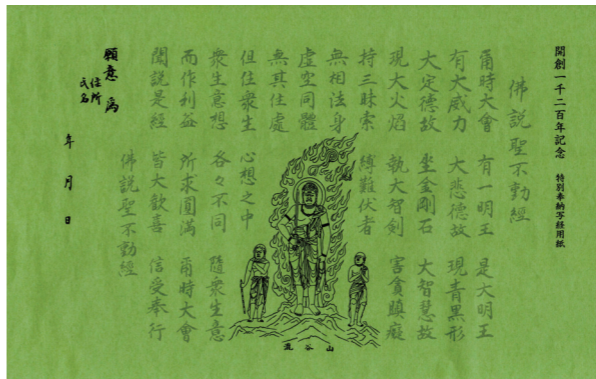 開創一千二百年記念 特別奉納写経用紙
佛説聖不動経
爾時大會 有一明王 是大明王
有大威力 大悲德故 現青黒形
大定德故 坐金剛石 大智慧故
現大火焔 執大智剣 害貪瞋癡
持三昧索 縛難伏者
無相法身
虚空同體
無其住處
但住衆生 心想之中
衆生意想 各々不同 隨衆生意
而作利益 所求圓満 爾時大會
聞説是経 皆大歓喜 信受奉行
佛説聖不動経
願意 為
住所
氏名
年 月 日
谷山